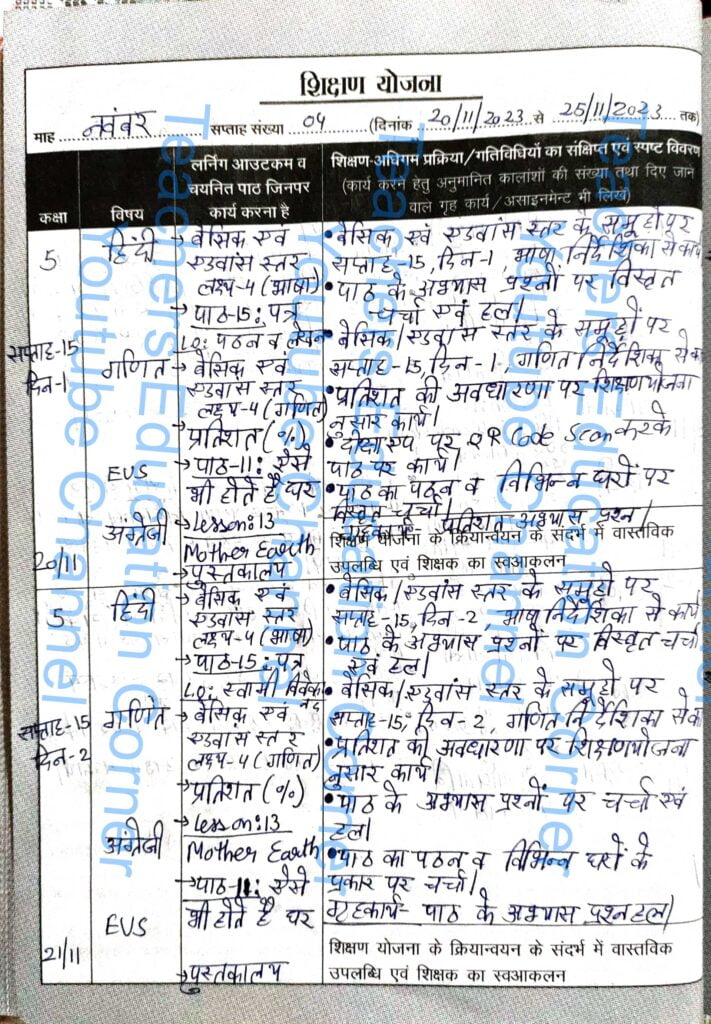 शिक्षण योजना
माह नवंबर सप्ताह संख्या 04 (दिनांक 20/11/2023 से 25/11/2023 तक)
कक्षा
विषय
लर्निंग आउटकम व
चयनित पाठ जिनपर
कार्य करना है
शिक्षण-अधिगम प्रक्रिया/गतिविधियों का संक्षिप्त एवं स्पष्ट विवरण
(कार्य करने हेतु अनुमानित कालांशों की संख्या तथा दिए जान
वाल गृह कार्य/असाइनमेन्ट भी लिखें)
5
सप्ताह-15
दिन-1
20/11
हिंदी
गणित
EVS
अंग्रेजी
→ बेसिक एवं
एडवांस स्तर
लक्ष्य-4 (भाषा)
→ पाठ-15: पत्र
LO: पठन व लेखन
→ बेसिक एवं
एडवांस स्तर
लक्ष्य-4 (गणित)
→ प्रतिशत (%)
→ पाठ-11: ऐसे
भी होते है घर
→ Lesson:13
Mother Earth
→ पुस्तकालय
• बेसिक एवं एडवांस स्तर के समूहों पर
सप्ताह-15, दिन-1, भाषा निर्देशिका से कार्य
• पाठ के अभ्यास प्रश्नों पर विस्तृत
चर्चा एवं हल।
• बेसिक/एडवांस स्तर के समूहों पर
सप्ताह-15, दिन-1, गणित निर्देशिका से का
• प्रतिशत की अवधारणा पर शिक्षणयोजना
नुसार कार्य।
• दीक्षा एप पर QR Code Scan करके
पाठ पर कार्य।
• पाठ का पठन व विभिन्न घरों पर
विस्तृत चर्चा।
गृहकार्य- प्रतिशत अभ्यास प्रश्न।
शिक्षण योजना के क्रियान्वयन के संदर्भ में वास्तविक
उपलब्धि एवं शिक्षक का स्वआकलन
5
सप्ताह-15
दिन-2
21/11
हिंदी
गणित
अंग्रेजी
EVS
→ बेसिक एवं
एडवांस स्तर
लक्ष्य-4 (भाषा)
→ पाठ-15: पत्र
LO: स्वामी विवेकानंद
→ बेसिक एवं
एडवास स्तर
लक्ष्य-4 (गणित)
→ प्रतिशत (%)
→ Lesson:13
Mother Earth
→ पाठ-11: ऐसे
भी होते है घर
→ पुस्तकालय
• बेसिक/एडवांस स्तर के समूहों पर
सप्ताह-15, दिन-2, भाषा निर्देशिका से कार्य
• पाठ के अभ्यास प्रश्नों पर विस्तृत चर्चा
एवं हल।
• बेसिक/एडवांस स्तर के समूहों पर
सप्ताह-15, दिन-2, गणित निर्देशिका से का
• प्रतिशत की अवधारणा पर शिक्षणयोजना
नुसार कार्य।
• पाठ के अभ्यास प्रश्नों पर चर्चा एवं
हल।
• पाठ का पठन व विभिन्न घरों के
प्रकार पर चर्चा।
गृहकार्य- पाठ के अभ्यास प्रश्न हल।
शिक्षण योजना के क्रियान्वयन के संदर्भ में वास्तविक
उपलब्धि एवं शिक्षक का स्वआकलन
Teachers Education Corner
Youtube Channel
Teachers Education Corner
Youtube Channel